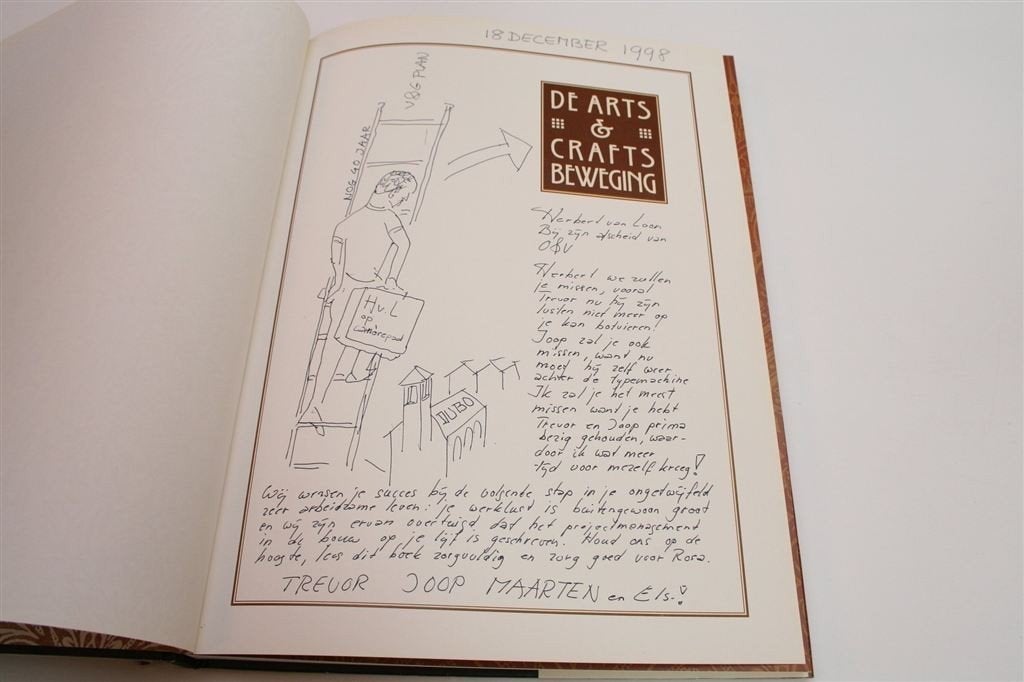 18 DECEMBER 1998
V&G PLAN
NOG 40 JAAR
DE ARTS
&
CRAFTS
BEWEGING
Herbert van Loon
Bij zijn afscheid van
O&V
Herbert we zullen
je missen, vooral
Trevor nu hij zijn
lusten niet meer op
je kan botvieren!
Joop zal je ook
missen, want nu
moet hij zelf weer
achter de typemachine
Ik zal je het meest
missen want je hebt
Trevor en Joop prima
bezig gehouden, waar-
door ik wat meer
tijd voor mezelf kreeg!
Hv.L
op
carrièrepad
DUBO
Wij wensen je succes bij de volgende stap in je ongetwijfeld
zeer arbeidzame leven: je werklust is buitengewoon groot
en wij zijn ervan overtuigd dat het projectmanagement
in de bouw op je lijf is geschreven. Houd ons op de
hoogte, lees dit boek zorgvuldig en zorg goed voor Rosa.
TREVOR JOOP MAARTEN en Els!